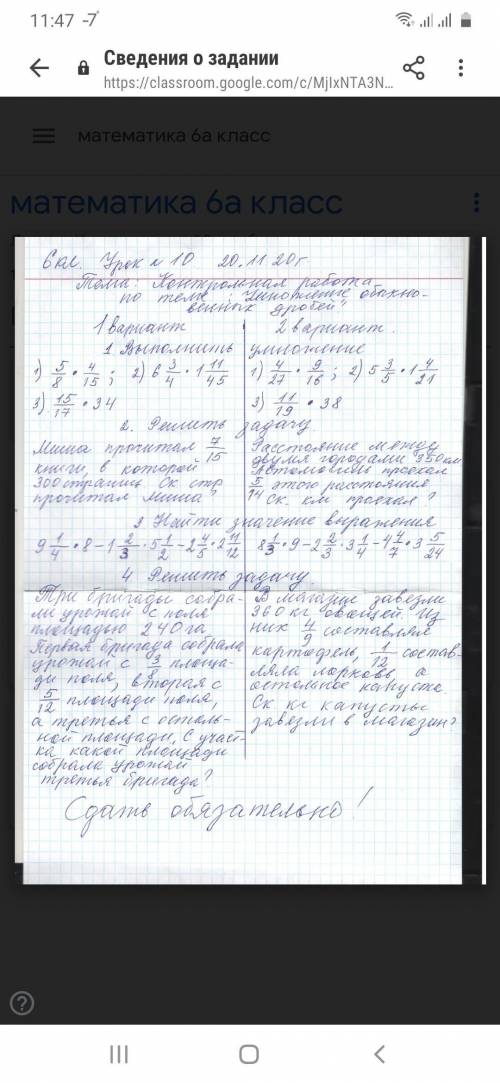 11:47 -7°
Сведения о задании
https://classroom.google.com/c/MjIxNTA3N...
математика 6а класс
математика 6а класс
6 кл. Урок № 10 20.11.20г.
Тема: Контрольная работа
по теме: "Умножение обыкно-
венных дробей"
1 вариант
2 вариант.
1 Выполнить умножение
1) 5/8 • 4/15; 2) 6 3/4 • 1 11/45
3) 15/17 • 34
1) 4/27 • 9/16; 2) 5 3/5 • 1 4/21
3) 11/19 • 38
2. Решить задачу.
Миша прочитал 7/15
книги, в которой
300 страниц Ск стр
прочитал Миша?
Расстояние между
двумя городами 350 км
Автомобиль проехал
5/14 этого расстояния
Ск. км проехал?
3 Найти значение выражения
9 1/4 • 8 - 1 2/3 • 5 1/2 - 2 4/5 • 2 11/12
8 1/3 • 9 - 2 2/3 • 3 1/4 - 4 4/7 • 3 5/24
4 Решить задачу.
Три бригады собра-
ли урожай с поля
площадью 240 га.
Первая бригада собрала
урожай с 3/8 площа-
ди поля, вторая с
5/12 площади поля,
а третья с осталь-
ной площади. С участ-
ка какой площади
собрала урожай
третья бригада?
В магазин завезли
360 кг овощей. Из
них 4/9 составлял
картофель, 1/12 состав-
ляла морковь, а
остальное капуста.
Ск кг капусты
завезли в магазин?
Сдать обязательно!